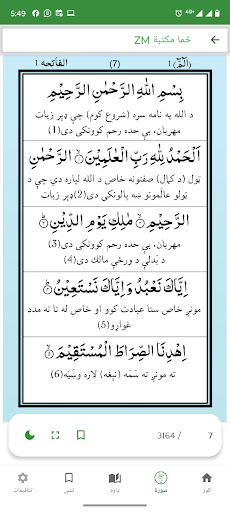 5:49
4G
ځما مكتبة ZM
الفَاتحه 1 (7) (الٓمّٓ) 1
بِسْمِ اللهِ الرَّحْمٰنِ الرَّحِيْمِ
د الله په نامه سره (شروع كوم) چې ډېر زيات
مهربان، بې حده رحم كوونكى دى(1)
اَلْحَمْدُ لِلّٰهِ رَبِّ الْعٰلَمِيْنَ ۙ الرَّحْمٰنِ
ټول (د كمال) صفتونه خاص د الله لپاره دي چې د
ټولو عالمونو ښه پالونكى دى(2)ډېر زيات
الرَّحِيْمِ ۙ مٰلِكِ يَوْمِ الدِّيْنِ ؕ
مهربان، بې حده رحم كوونكى دى(3)
د بَدلې د ورځې مالك دى(4)
اِيَّاكَ نَعْبُدُ وَاِيَّاكَ نَسْتَعِيْنُ ؕ
مونږ خاص ستا عبادت كوو او خاص له تا نه مدد
غواړو(5)
اِهْدِنَا الصِّرَاطَ الْمُسْتَقِيْمَ ۙ
ته مونږ ته سَمَه (نېغه) لاره وښَيَه(6)
7 / 3164
كور
سورة
پاره
نښې
تنظيمات